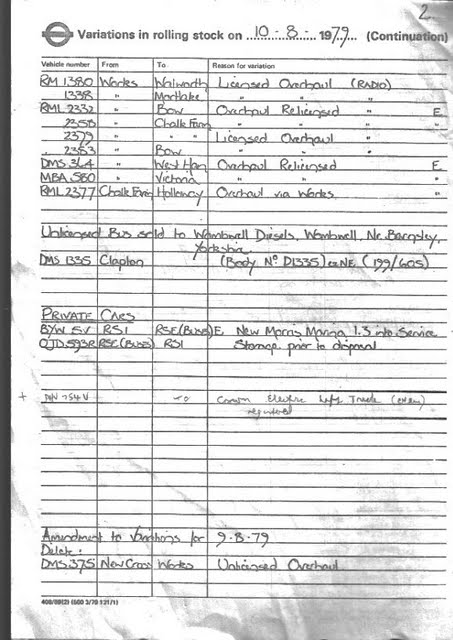 2
Variations in rolling stock on 10-8- 1979 (Continuation)
Vehicle number From To Reason for variation
RM 1380 Works Walworth Licensed Overhaul (RADIO)
1338 " Mortlake " " "
RML 2332 " Bow Overhaul Relicensed E
2358 " Chalk Farm " " "
2379 " " Licensed Overhaul
2363 " Bow " "
DMS 364 " West Ham Overhaul Relicensed E
MBA 580 " Victoria " " "
RML 2377 Chalk Farm Holloway Overhaul via Works "
Unlicensed Bus sold to Wombwell Diesels, Wombwell, Nr. Barnsley,
Yorkshire
DMS 1335 Clapton (Body No D1335) ex NE (199/605)
PRIVATE CARS
BYW 5V RS1 RSE(BUSES) E, New Morris Marina 1.3 into Service
OJD 593R RSE(BUSES) RS1 Storage prior to disposal
+ 754V Electric Truck
registered
Amendment to Variations for 9-8-79
Delete:
DMS 375 New Cross Works Unlicensed Overhaul